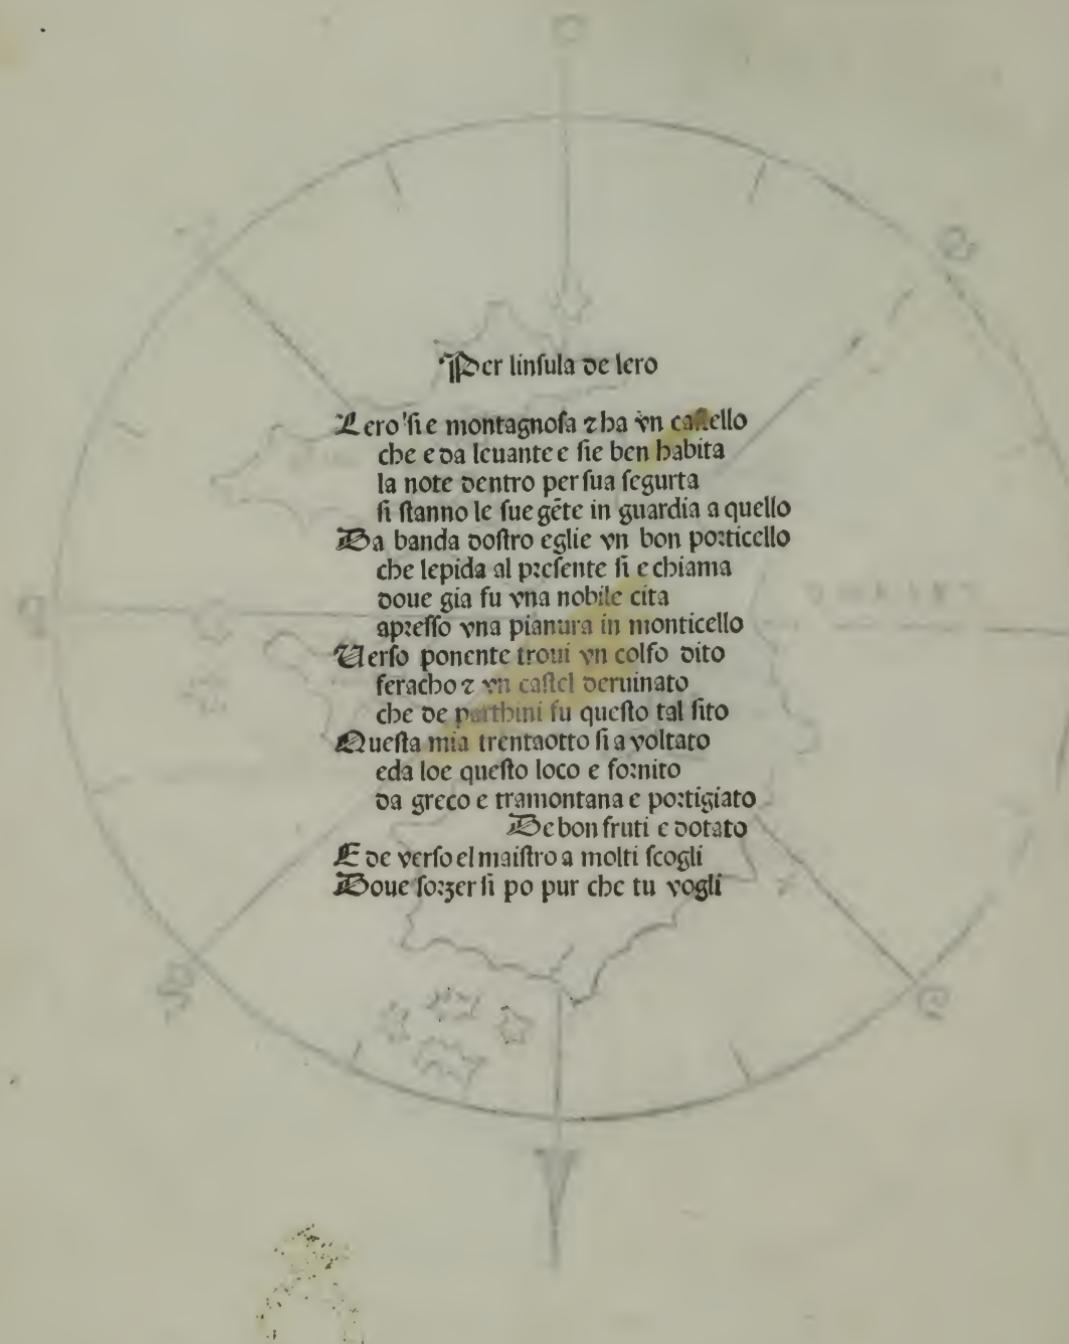 Per linſula de lero
Lero ſi e montagnoſa ⁊ ha vn caſtello
che e da leuante e ſie ben habita
la note dentro per ſua ſegurta
ſi ſtanno le ſue gẽte in guardia a quello
Da banda doſtro eglie vn bon porticello
che lepida al preſente ſi e chiama
doue gia fu vna nobile cita
apreſſo vna pianura in monticello
Uerſo ponente troui vn colfo dito
feracho ⁊ vn caſtel deruinato
che de parthini fu queſto tal ſito
Queſta mia trentaotto ſi a voltato
eda loe queſto loco e fornito
da greco e tramontana e portigiato
De bon fruti e dotato
E de verſo el maiſtro a molti ſcogli
Doue ſorzer ſi po pur che tu vogli